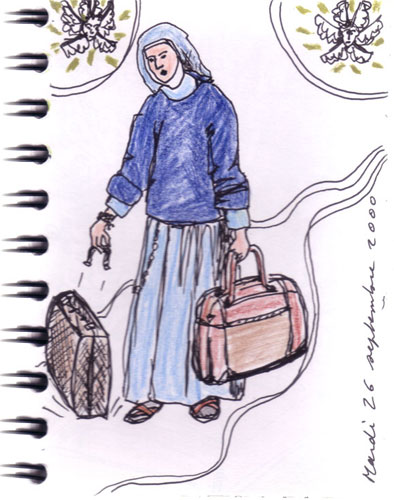 Mardi 26 septembre 2000